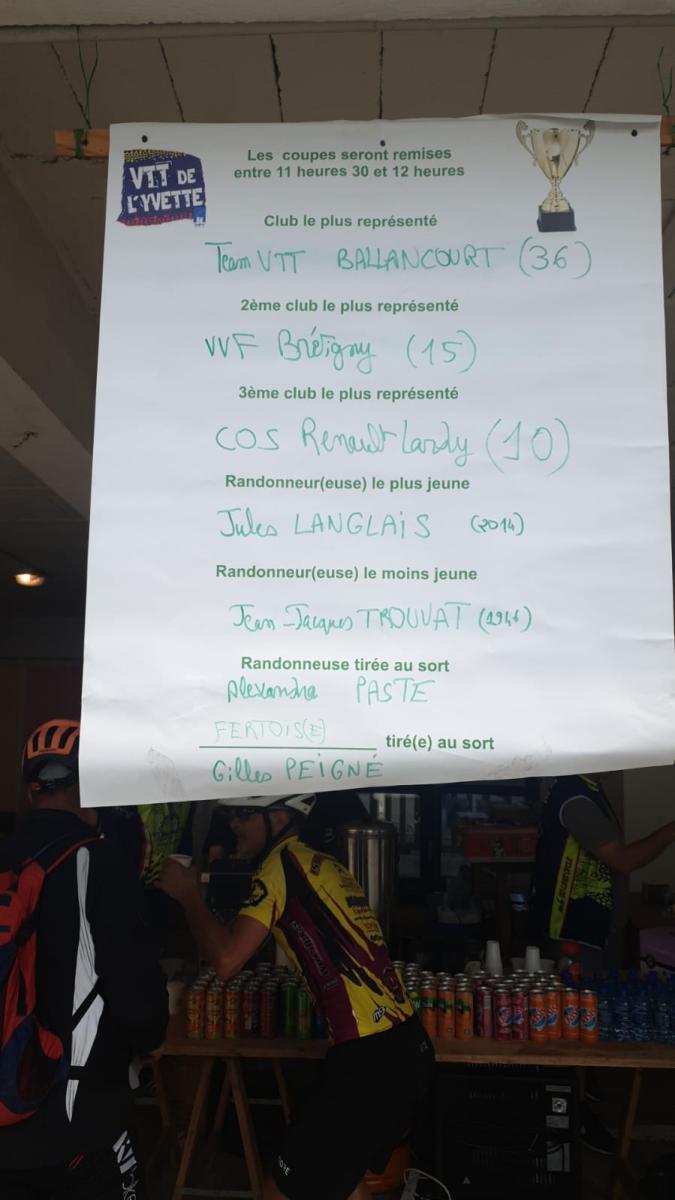 VTT DE
L'YVETTE
Les coupes seront remises
entre 11 heures 30 et 12 heures
Club le plus représenté
Team VTT BALLANCOURT (36)
2ème club le plus représenté
VVF Brétigny (15)
3ème club le plus représenté
COS Renault Lardy (10)
Randonneur(euse) le plus jeune
Jules LANGLAIS (2014)
Randonneur(euse) le moins jeune
Jean-Jacques TROUVAT (1946)
Randonneuse tirée au sort
Alexandra PASTE
FERTOIS(E) tiré(e) au sort
Gilles PEIGNÉ